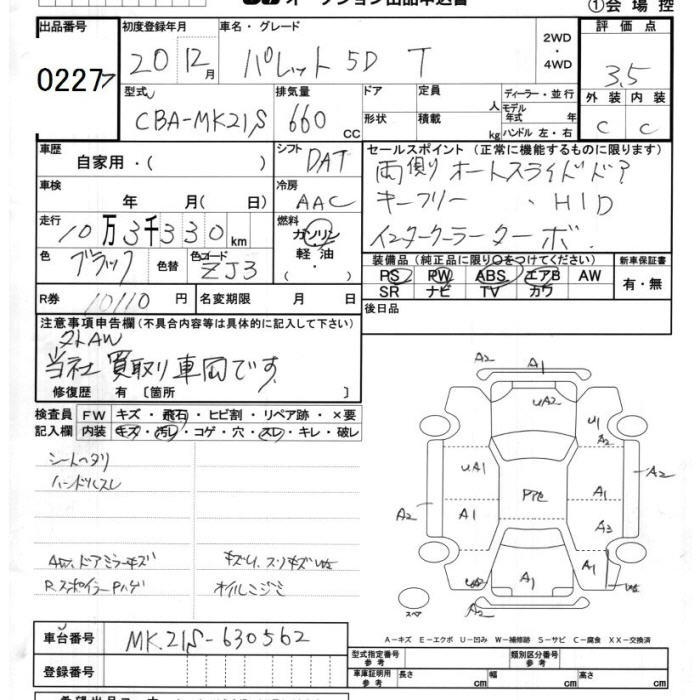 オークション出品申込書
①会場控
出品番号
0227
初度登録年月
20 12月
車名・グレード
パレット 5D T
2WD
・
4WD
評価点
3.5
外装 内装
C C
型式
CBA-MK21S
排気量
660 CC
ドア
形状
定員
人
積載
kg
ディーラー・並行
モデル
年式 年
ハンドル 左・右
車歴
自家用・( )
シフト
DAT
セールスポイント (正常に機能するものに限ります)
両側オートスライドドア
キーフリー ・HID
インタークーラーターボ
車検
年 月( 日)
冷房
AAC
走行
10万3千330km
燃料
ガソリン
軽油
( ・ )
色
ブラック
色替
色コード
ZJ3
装備品 (純正品に限り○をつけてください)
PS PW ABS エアB AW
SR ナビ TV カワ
新車保証書
有・無
R券
10110 円
名変期限 月 日
後日品
注意事項申告欄 (不具合内容等は具体的に記入して下さい)
外AW
当社買取り車両です
修復歴 有 〔箇所 〕
検査員
記入欄
FW キズ・飛石・ヒビ割・リペア跡・×要
内装 キズ・汚レ・コゲ・穴・スレ・キレ・破レ
シートヘタリ
ハンドルスレ
AW、ドアミラーキズ
R.スポイラーPハゲ
オイルニジミ
A2 A1
UA2
U1
A2
UA1
A2
Pアセ
A1
A1
A2
A3
A1
A1
A2
スペア
A-キズ E-エクボ U-凹み W-補修跡 S-サビ C-腐食 XX-交換済
車台番号
MK21S-630562
登録番号
型式指定番号
参考
類別区分番号
参考
車庫証明用
参考
長さ cm
幅 cm
高さ cm
希望出品コーナー